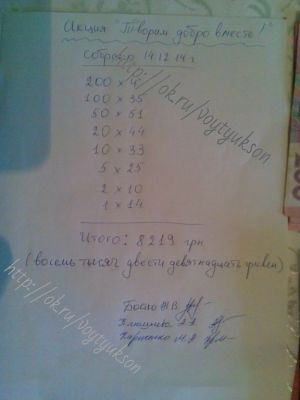 Акция "Творим добро вместе!"
Собрано 14.12.14 г
200 × 4
100 × 35
50 × 51
20 × 44
10 × 33
5 × 25
2 × 10
1 × 14
Итого: 8219 грн
(восемь тысяч двести девятнадцать гривен)
http://ok.ru/voytyukson
http://ok.ru/voytyukson